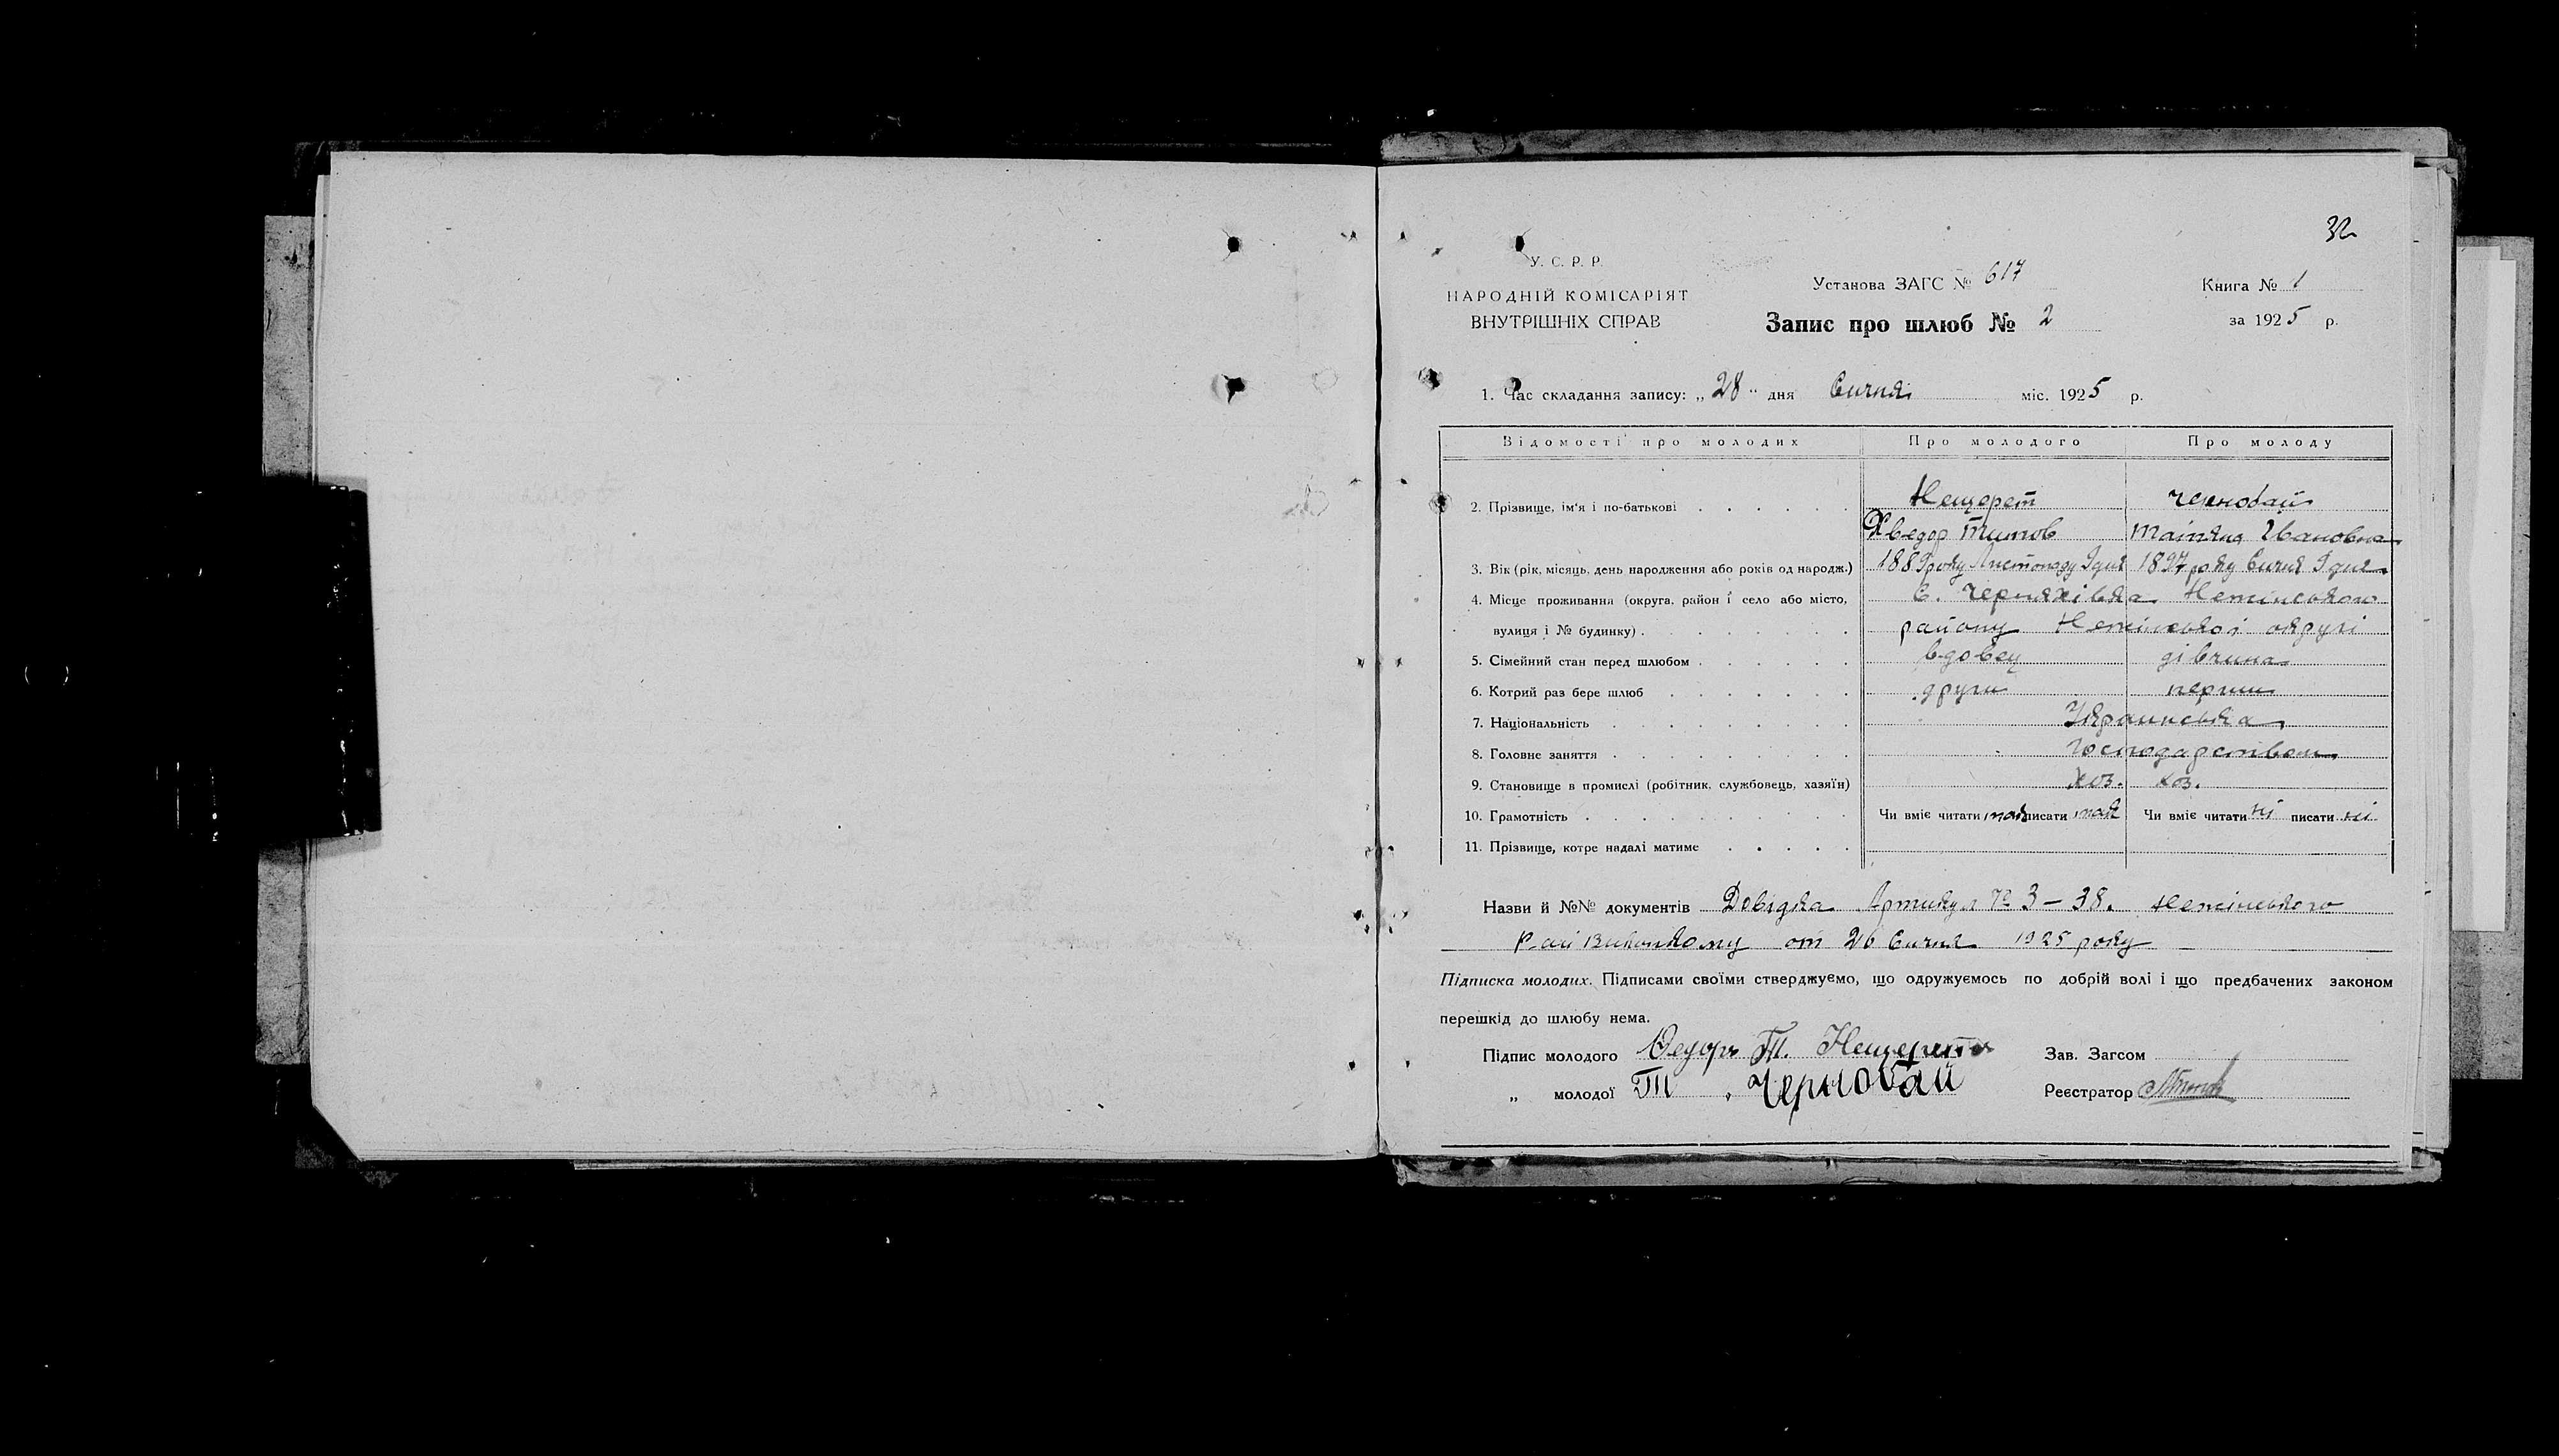 32
У. С. Р. Р.
НАРОДНІЙ КОМІСАРІЯТ
ВНУТРІШНІХ СПРАВ
Установа ЗАГС № 617
Запис про шлюб № 2
Книга № 1
за 1925 р.
1. Час складання запису: „28" дня Сичня міс. 1925 р.
Відомості про молодих Про молодого Про молоду
2. Прізвище, ім'я і по-батькові Нещерет Чернобай
Хведор Титов Татяна Івановна
3. Вік (рік, місяць, день народження або років од народж.) 1889 року Листопаду дня 1897 року Сичня дня
4. Місце проживання (округа, район і село або місто, С. Черняхівка Неженського
вулиця і № будинку) району Неженської округі
5. Сімейний стан перед шлюбом вдовец дівчина
6. Котрий раз бере шлюб други перши
7. Національність Украинська
8. Головне заняття Господарством
9. Становище в промислі (робітник, службовець, хазяїн) хоз. хоз.
10. Грамотність Чи вміє читати так писати так Чи вміє читати ні писати ні
11. Прізвище, котре надалі матиме
Назви й №№ документів Довідка Артикул № 3 – 38. Неженського
Рай Виконкому от 26 Сичня 1925 року
Підписка молодих. Підписами своїми стверджуємо, що одружуємось по добрій волі і що предбачених законом
перешкід до шлюбу нема.
Підпис молодого Федоръ Т. Нещеретъ Зав. Загсом
„ молодої Т. Чернобай Реєстратор